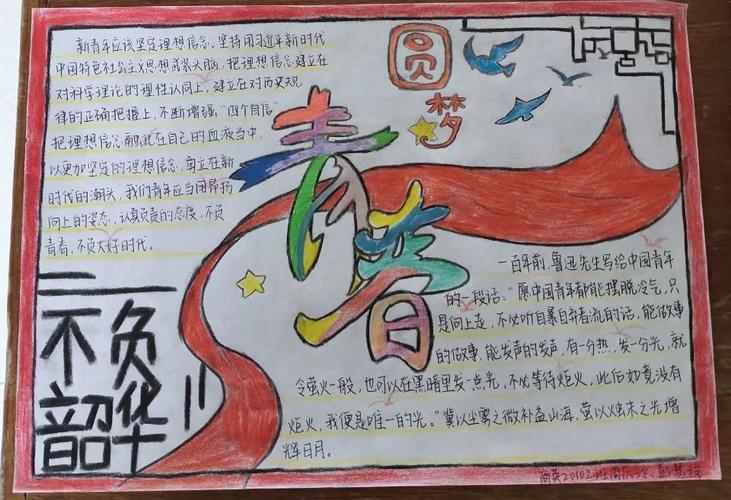 新青年应该坚定理想信念，坚持用习近平新时代
中国特色社会主义思想武装头脑，把理想信念建立在
对科学理论的理性认同上，建立在对历史规
律的正确把握上，不断增强“四个自信”
把理想信念融化在自己的血液当中。
以更加坚定的理想信念，勇立在新
时代的潮头，我们青年应当用昂扬
向上的姿态，认真负责的态度，不负
青春，不负大好时代。
圆
梦
青春
不负
韶华
一百年前，鲁迅先生写给中国青年
的一段话：“愿中国青年都能摆脱冷气，只
是向上走，不必听自暴自弃者流的话，能做事
的做事，能发声的发声，有一分热，发一分光，就
令萤火一般，也可以在黑暗里发一点光，不必等待炬火，此后如竟没有
炬火，我便是唯一的光。”冀以尘雾之微补益山海，萤以烛末之光增
辉日月。